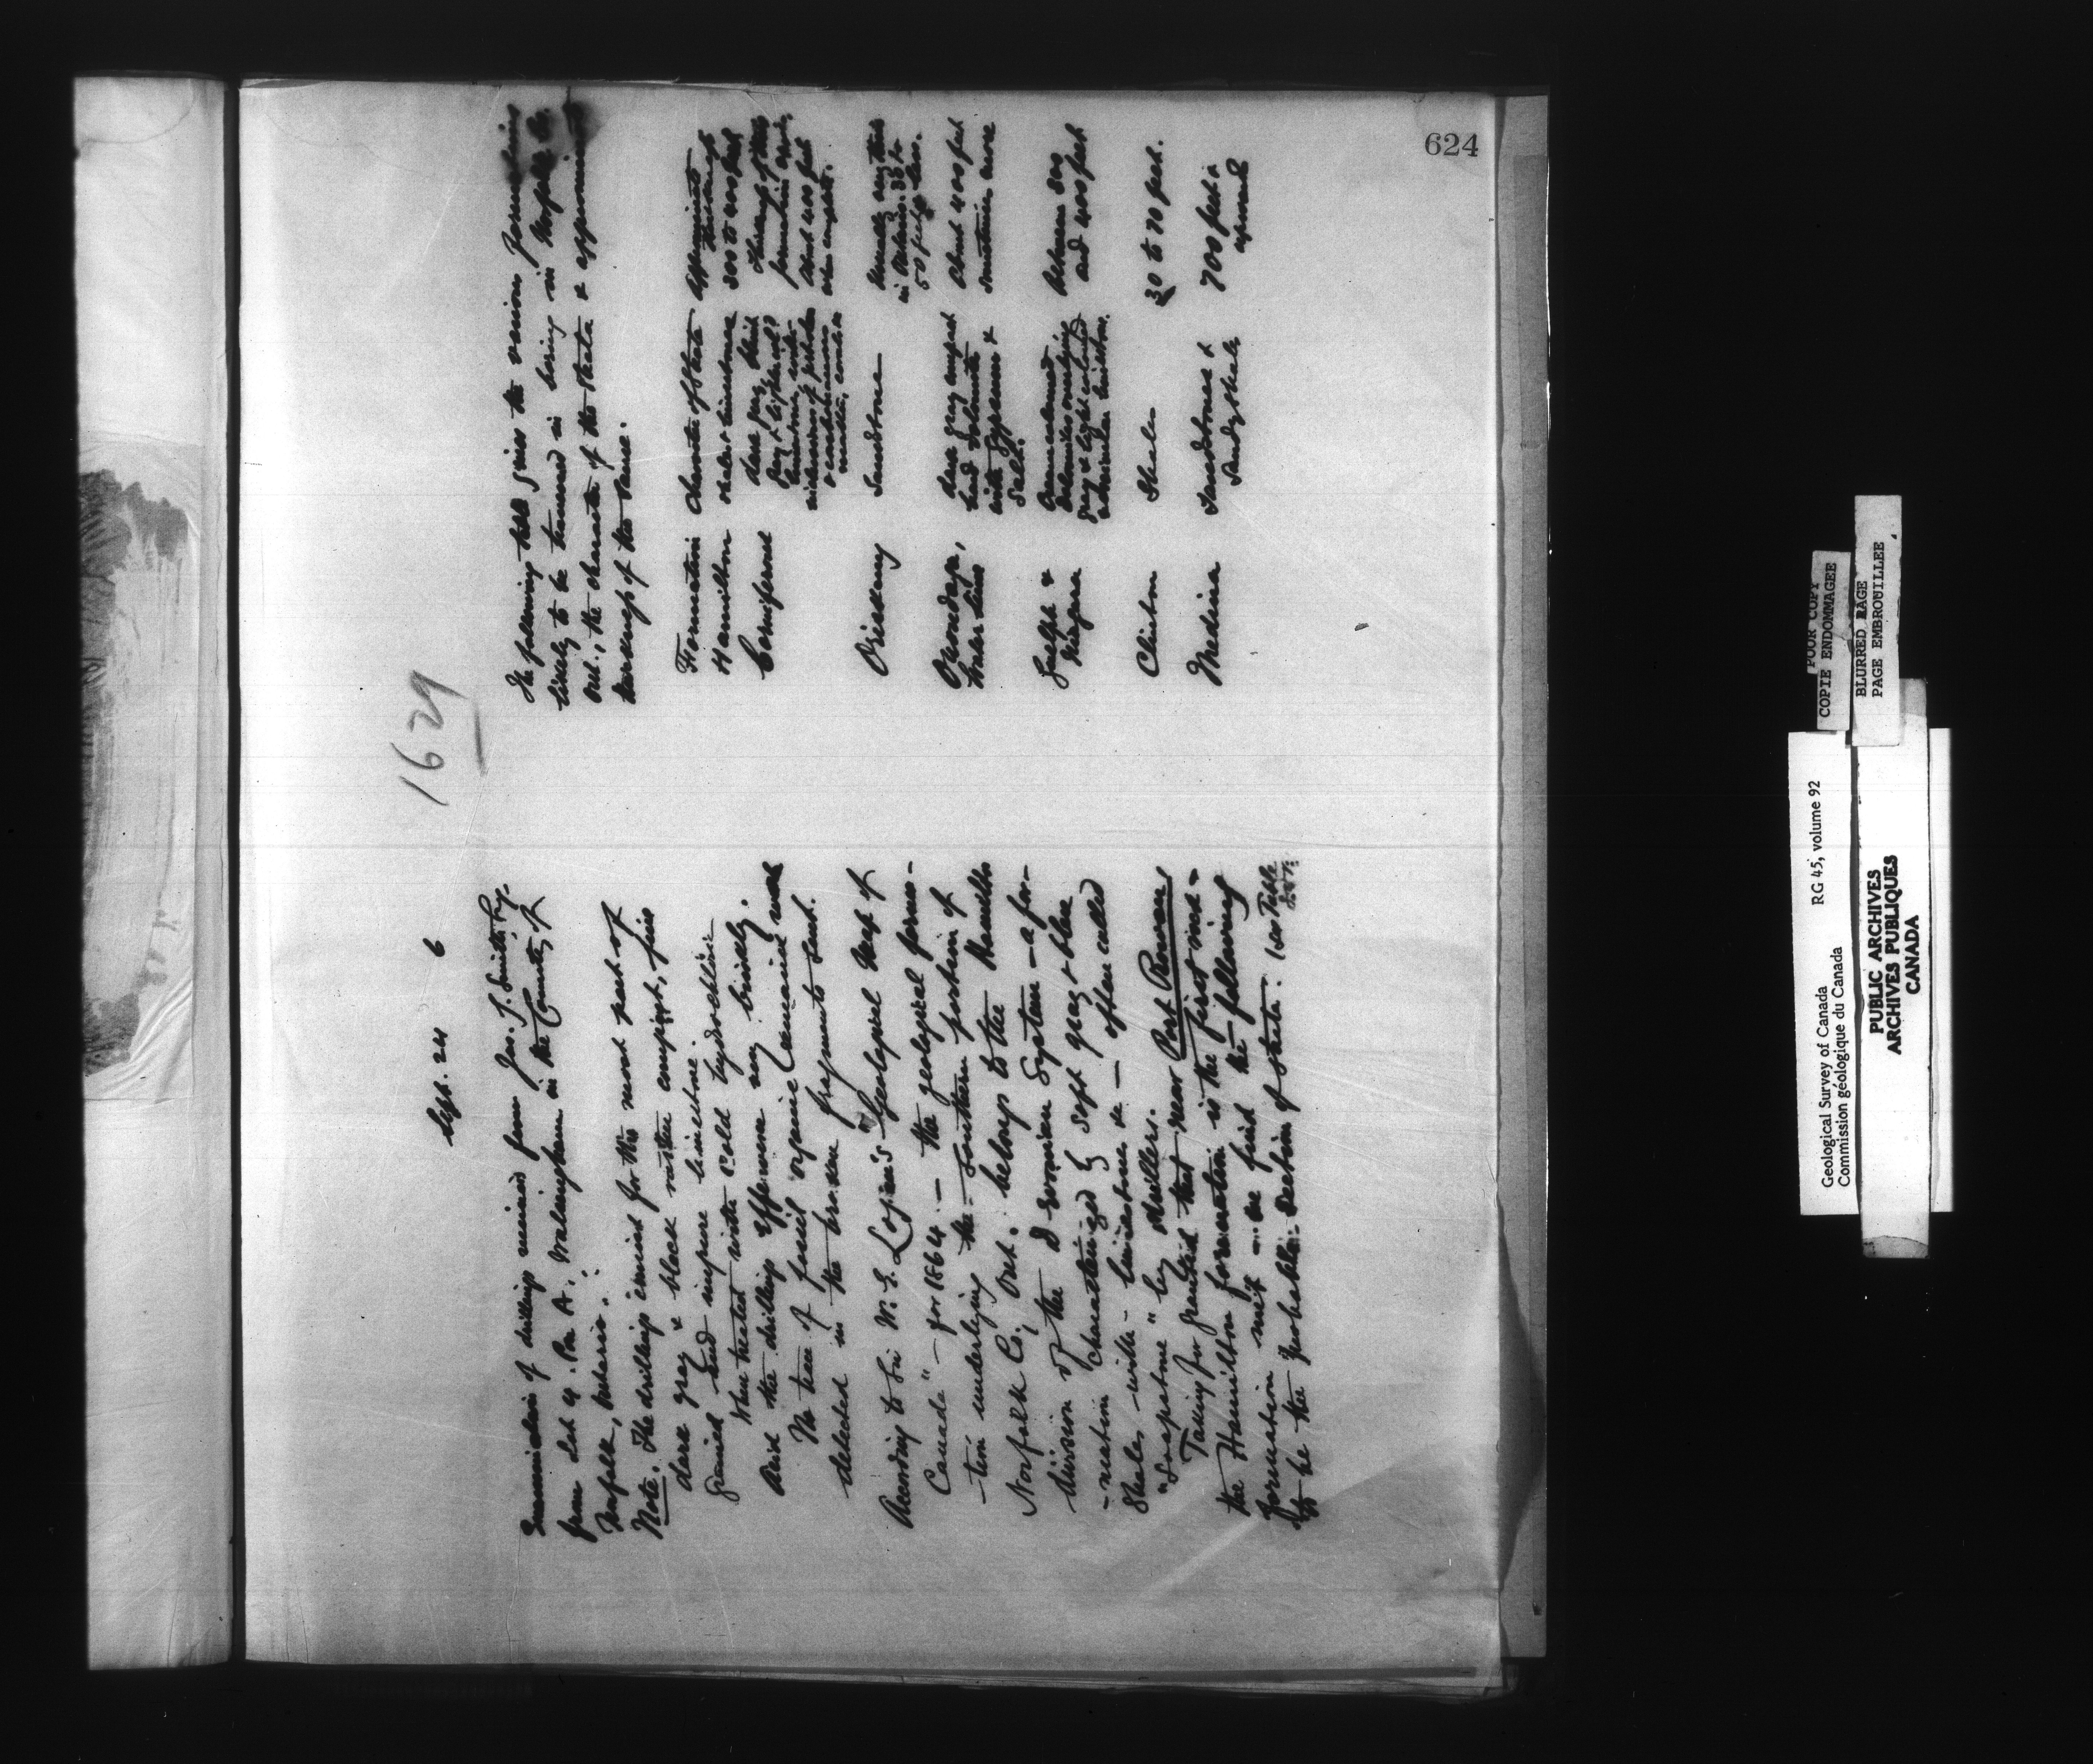 624
1629
Sept. 24 6
Examination of drillings received from Jas. J. Smith, Esq.
from Lot 9. Con A. Walsingham in the County of
Norfolk, Ontario.
Note. The drillings consist for the most part of
dark gray & black rather compact, fine
grained and impure limestone.
When treated with cold hydrochloric
Acid the drillings effervesce very briskly.
No trace of fossil organic remains were
detected in the broken fragments sent.
According to Sir W. E. Logan's "Geological Map of
Canada" – for 1864 – the geological forma-
-tion underlying the southern portion of
Norfolk Co., Ont. belongs to the Hamilton
division of the Devonian System – a for-
-mation characterized by soft gray & blue
shales – with – limestone &c – often called
"Soapstone" by drillers.
Taking for granted that near Port Rowan,
the Hamilton formation is the first rock –
formation met – we find the following
to be the probable section of strata: (see Table
The following table gives the various formations
likely to be traversed in boring in Norfolk Co.,
Ont., the character of the strata & approximate
thickness of the same.
Formation Character of Strata Approximate
thickness
Hamilton shales & limestones 300 to 400 feet
Corniferous dark gray, bluish
gray & light col'd
limestones, with
Oriskany Sandstone Usually very thin
in Ontario. 35 to
50 feet less.
Onondaga, dark gray compact About 400 feet
Water lime hard dolomites sometimes more
with Gypsum &
Salt.
Guelph & Cream colored Between 300
Niagara dolomites overlying and 400 feet
gray & light colored
Clinton Shales 30 to 70 feet.
Medina Sandstones & 700 feet &
Sandy Shale upwards
POOR COPY
COPIE ENDOMMAGEE
BLURRED PAGE
PAGE EMBROUILLEE
Geological Survey of Canada RG 45, volume 92
Commission géologique du Canada
PUBLIC ARCHIVES
ARCHIVES PUBLIQUES
CANADA